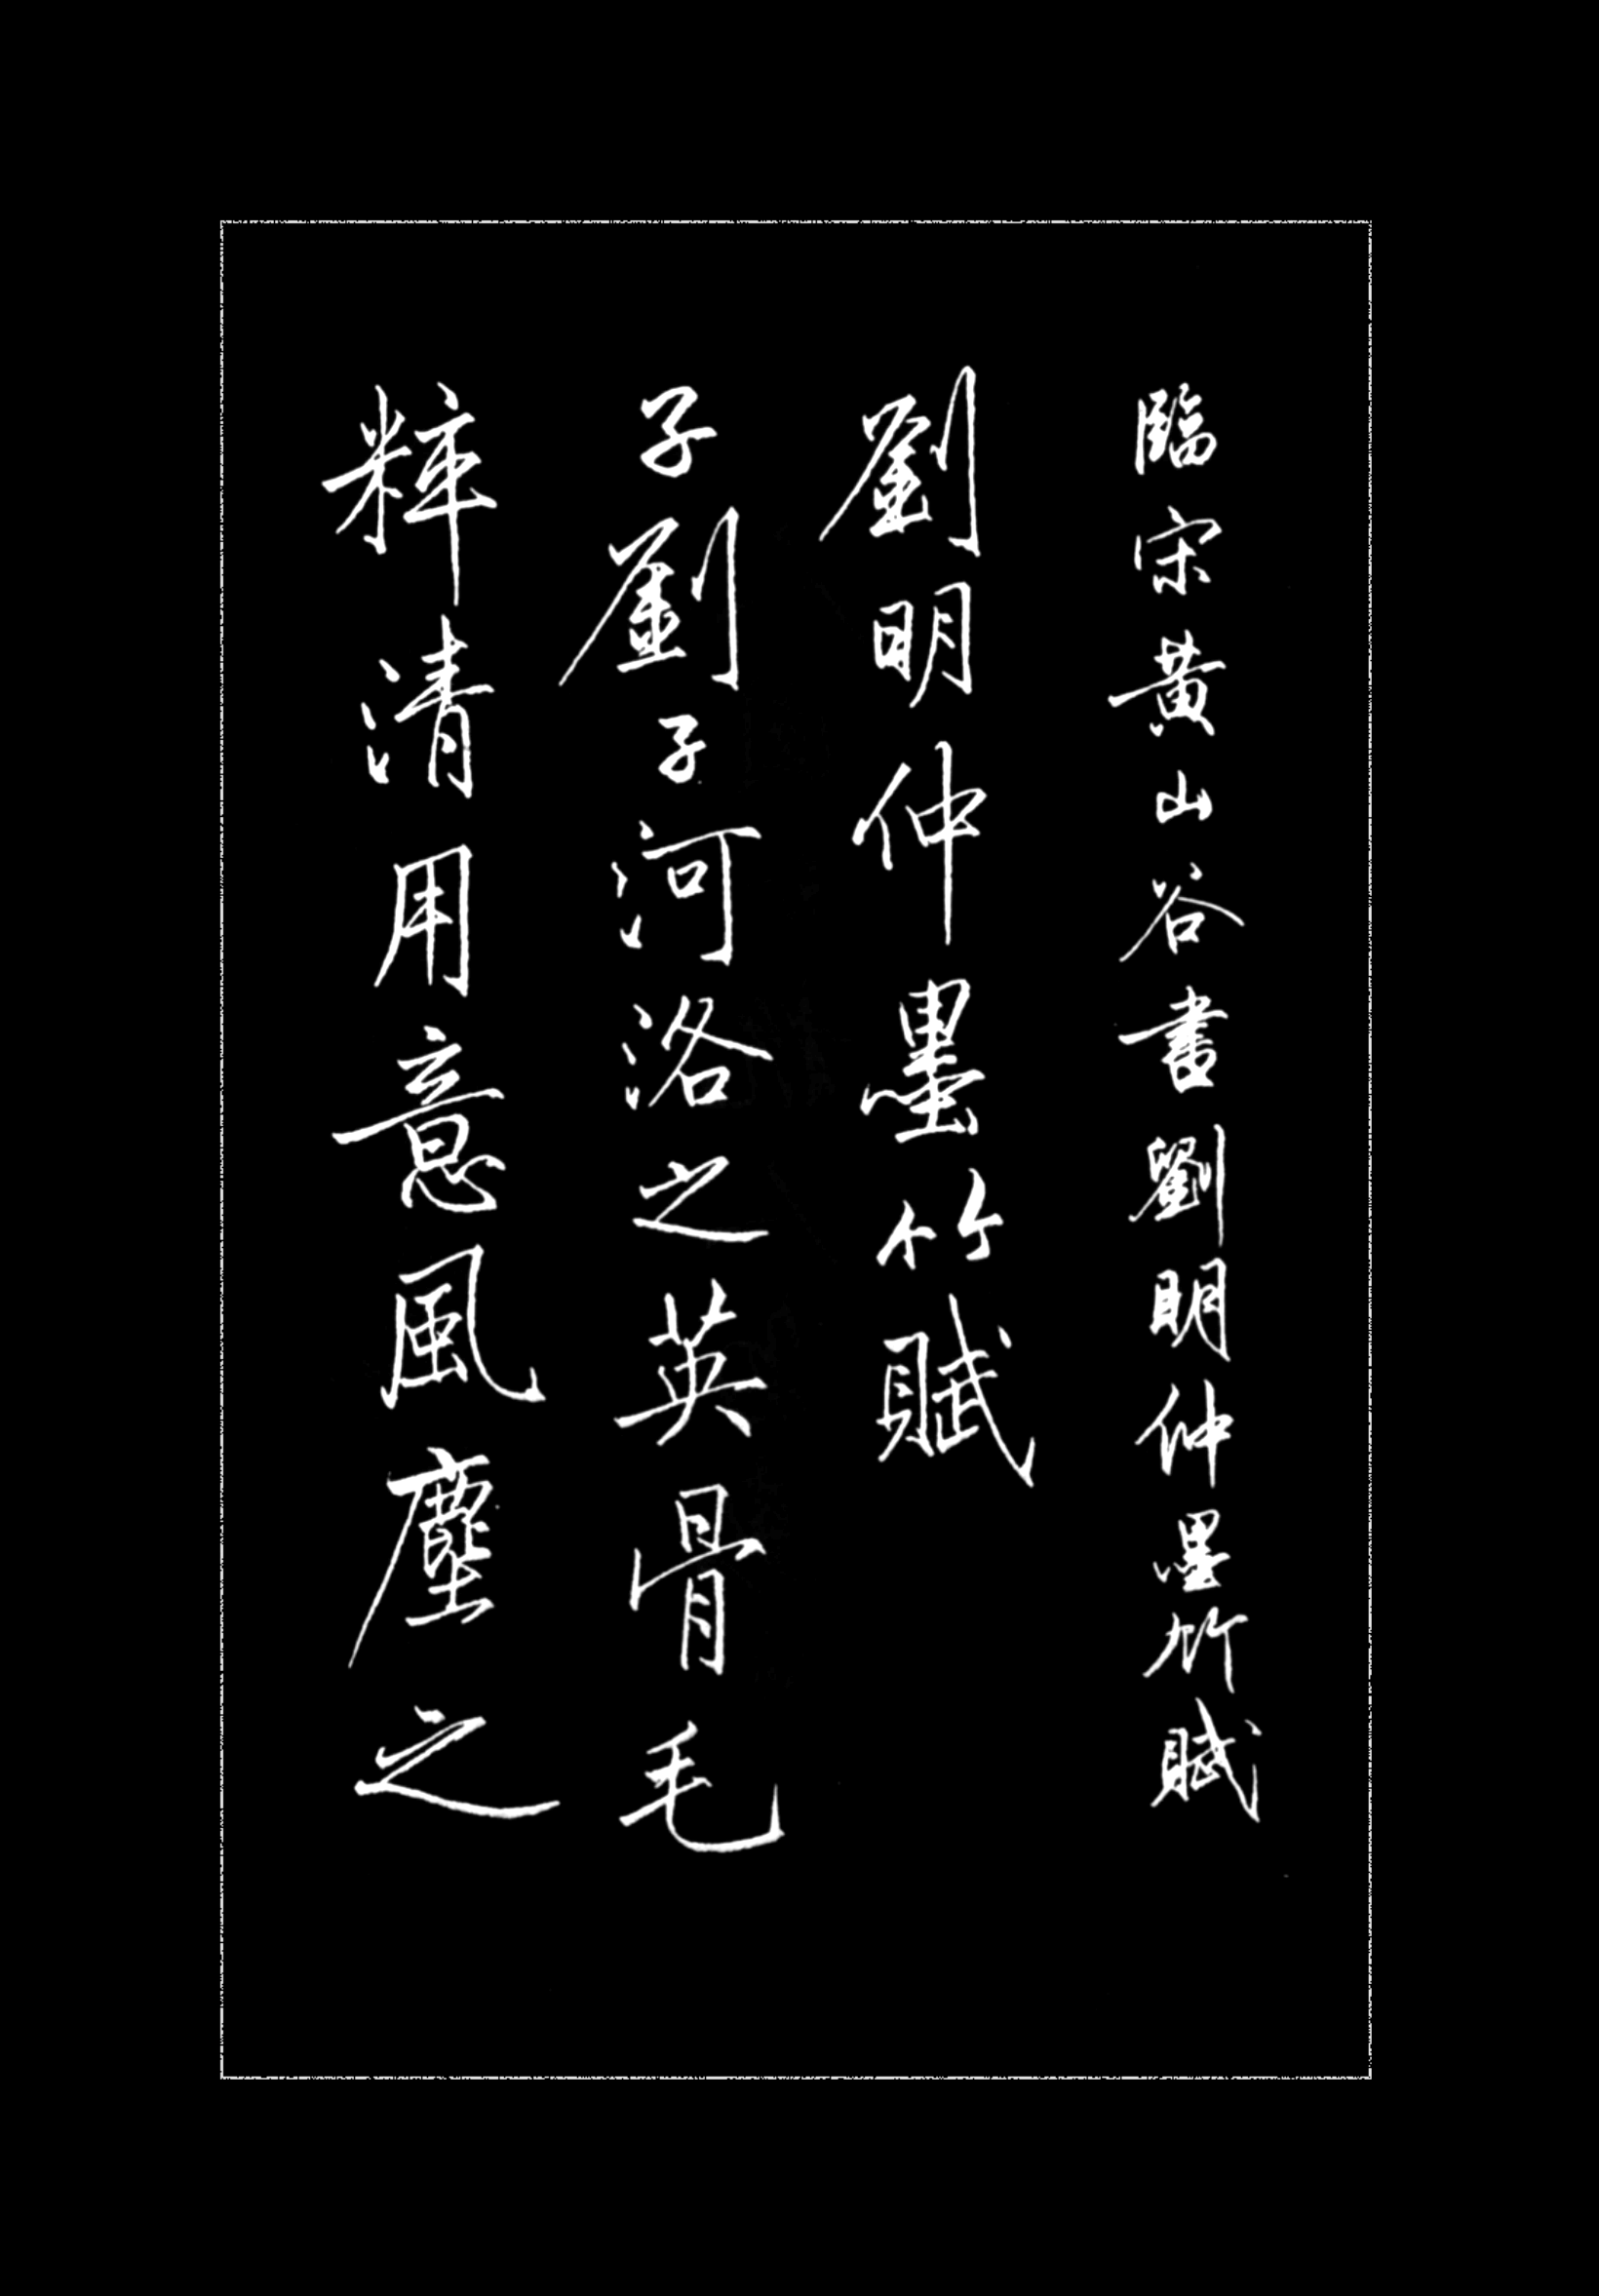 臨宋黃山谷書劉明仲墨竹賦
劉明仲墨竹賦
子劉子河洛之英骨毛
粹清用意風塵之